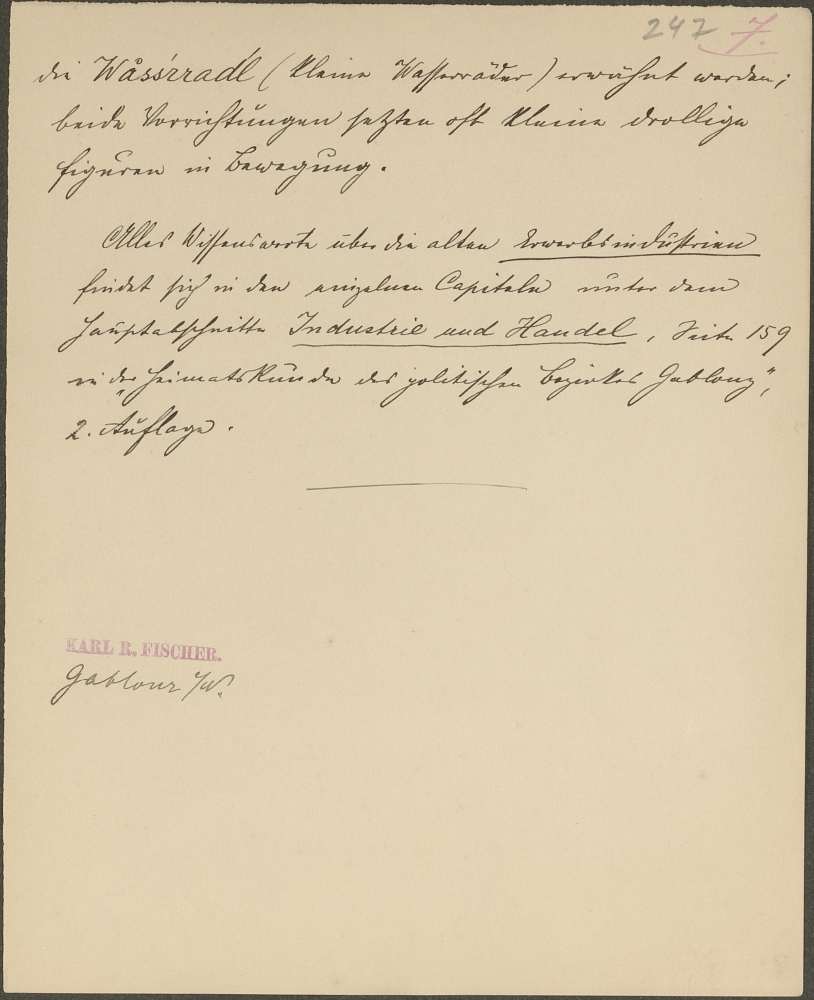 247 7.
die Wåssrradl (kleine Wasserräder) erwähnt werden;
beide Vorrichtungen setzten oft kleine drollige
Figuren in Bewegung.
Alles Wissenswerte über die alten Erwerbsindustrien
findet sich in den einzelnen Capiteln unter dem
Hauptabschnitte Industrie und Handel, Seite 159
in der „Heimatskunde des politischen Bezirkes Gablonz",
2. Auflage.
KARL R. FISCHER.
Gablonz a/N.